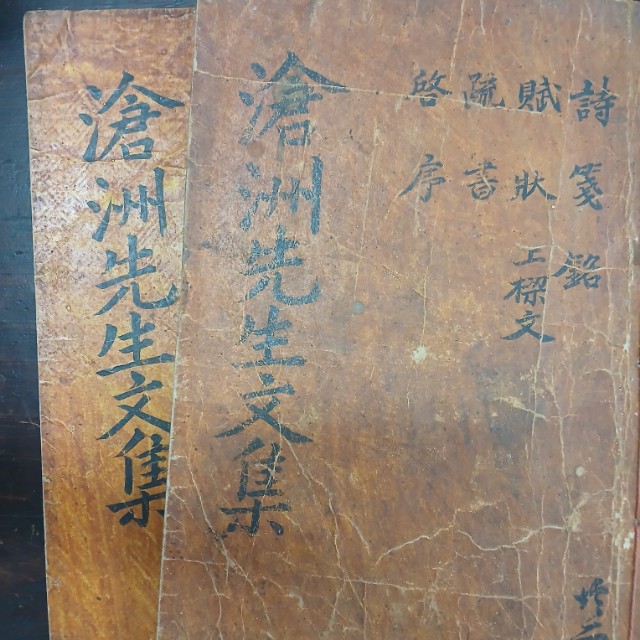 詩 箋 銘
賦 狀 上樑文
疏 書
啓 序
滄洲先生文集
滄洲先生文集